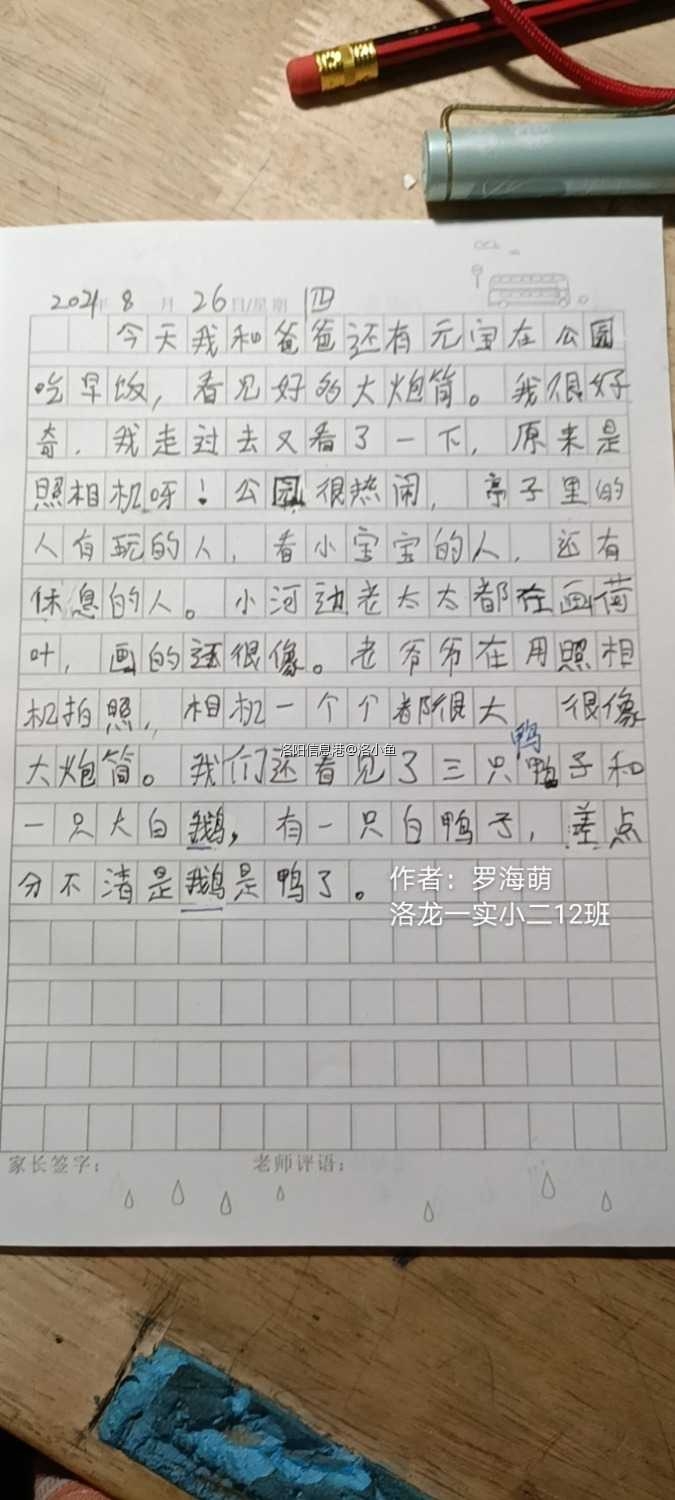 2021年 8 月 26 日/星期 四
今天我和爸爸还有元宝在公园
吃早饭，看见好多大炮筒。我很好
奇，我走过去又看了一下，原来是
照相机呀！公园很热闹，亭子里的
人有玩的人，看小宝宝的人，还有
休息的人。小河边老太太都在画荷
叶，画的还很像。老爷爷在用照相
机拍照，相机一个个都很大 很像
鸭
洛阳信息港@洛小鱼
大炮筒。我们还看见了三只鸭子和
一只大白鹅，有一只白鸭子，差点
分不清是鹅是鸭了。
作者：罗海萌
洛龙一实小二12班
家长签字： 老师评语：